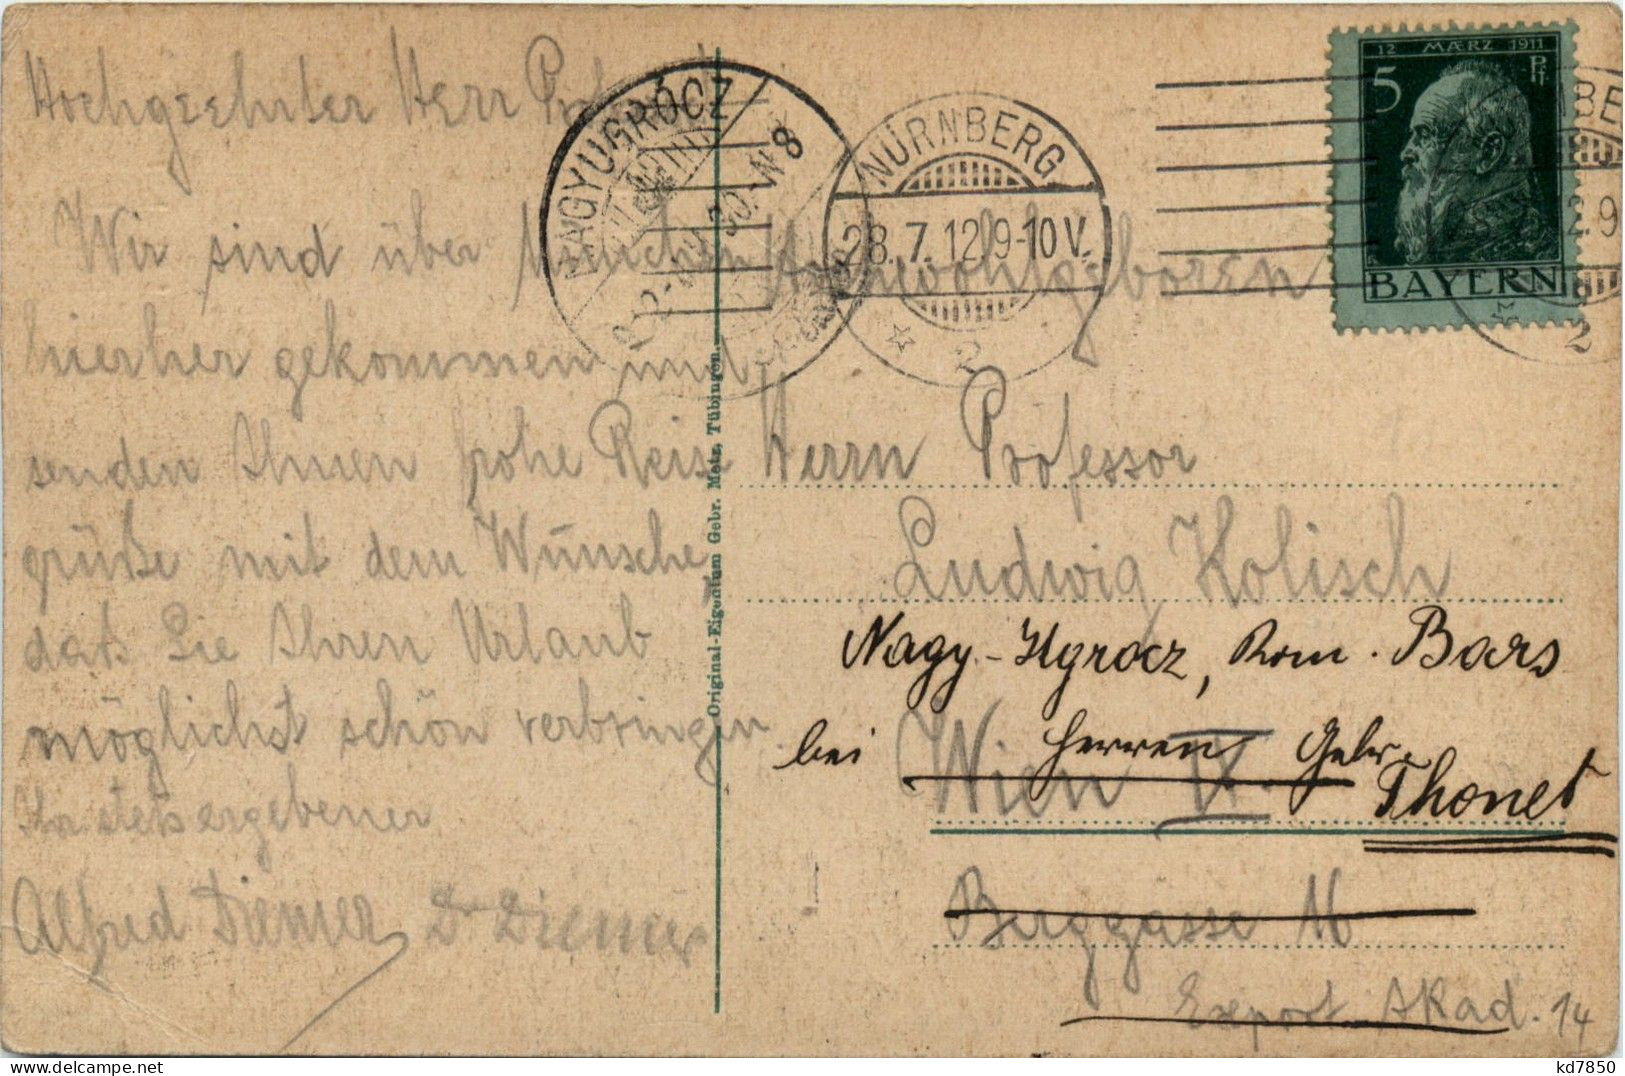 Hochgeehrter Herr
Wir sind über München
hierher gekommen und
senden Ihnen frohe Reise
grüße mit dem Wunsche,
daß Sie Ihren Urlaub
möglichst schön verbringen
Ihr stets ergebener
Alfred Diemer Dr Diemer
Original-Eigentum Gebr. Metz, Tübingen.
NAGYUGRÓCZ
NÜRNBERG
28.7.12.9-10V.
2
12 MÆRZ 1911
5 Pf
BAYERN
2
Hochwohlgeboren
Herrn Professor
Ludwig Kolisch
Nagy-Ugrócz, Kom. Bars
bei Herren Gebr.
Thonet
Wien IX.
Berggasse 16
Export-Akad. 14
kd7850